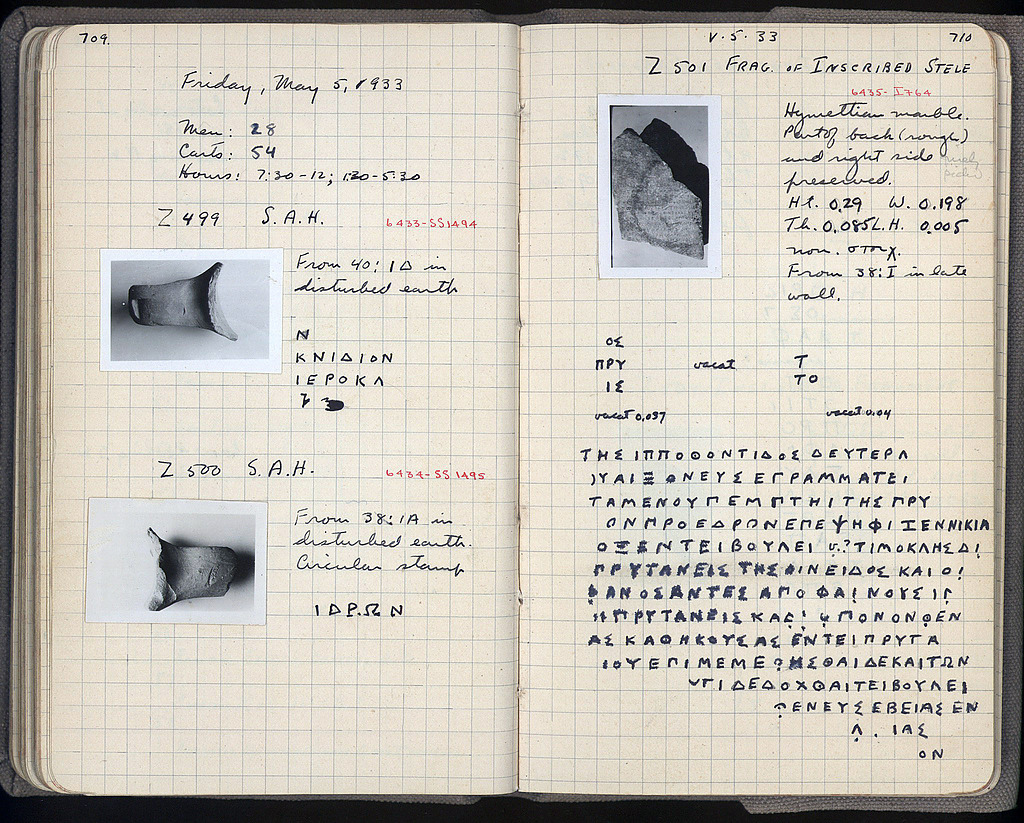 709.
Friday, May 5, 1933
Men: 28
Carts: 54
Hours: 7:30-12; 1:30-5:30
Z 499 S.A.H. 6433-SS1494
From 40: ΙΔ in
disturbed earth
Ν
ΚΝΙΔΙΟΝ
ΙΕΡΟΚΛ
Z 500 S.A.H. 6434-SS 1495
From 38: ΙΑ in
disturbed earth.
Circular stamp
ΙΔΡΩΝ
V.5.33 710
Z 501 FRAG. OF INSCRIBED STELE
6435-I764
Hymettian marble.
Part of back (rough)
and right side
preserved.
Ht. 0.29 W. 0.198
Th. 0.085 L.H. 0.005
non. στοιχ.
From 38: I in late
wall.
ΟΣ
ΠΡΥ vacat Τ
ΙΣ ΤΟ
vacat 0.037 vacat 0.04
ΤΗΣΙΠΠΟΘΟΝΤΙΔΟΣ ΔΕΥΤΕΡΑ
ΝΕΥΣ ΕΓΡΑΜΜΑΤΕΙ
ΤΑΜΕΝΟΥΠΕΜΠΤΗΙΤΗΣ ΠΡΥ
ΩΝΠΡΟΕΔΡΩΝΕΠΕΨΗΦΙΙΕΝΝΙΚΙΑ
ΟΞΕΝΤΕΙΒΟΥΛΕΙ v.? ΤΙΜΟΚΛΗΣΔΙ
ΠΡΥΤΑΝΕΙΣ ΤΗΣΟΙΝΕΙΔΟΣ ΚΑΙΟΙ
ΑΝΟΣΑΝΤΕΣ ΑΠΟΦΑΙΝΟΥΣΙ
ΠΡΥΤΑΝΕΙΣ
ΑΣ ΚΑΘΗΚΟΥΣΑΣ ΕΝΤΕΙΠΡΥΤΑ
ΙΟΥΕΠΙΜΕΜΕ ΗΣΘΑΙΔΕΚΑΙΤΩΝ
ΙΔΕΔΟΧΘΑΙΤΕΙΒΟΥΛΕΙ
ΕΝΕΥΣΕΒΕΙΑΣΕΝ
Λ . ΙΑΣ
ΟΝ